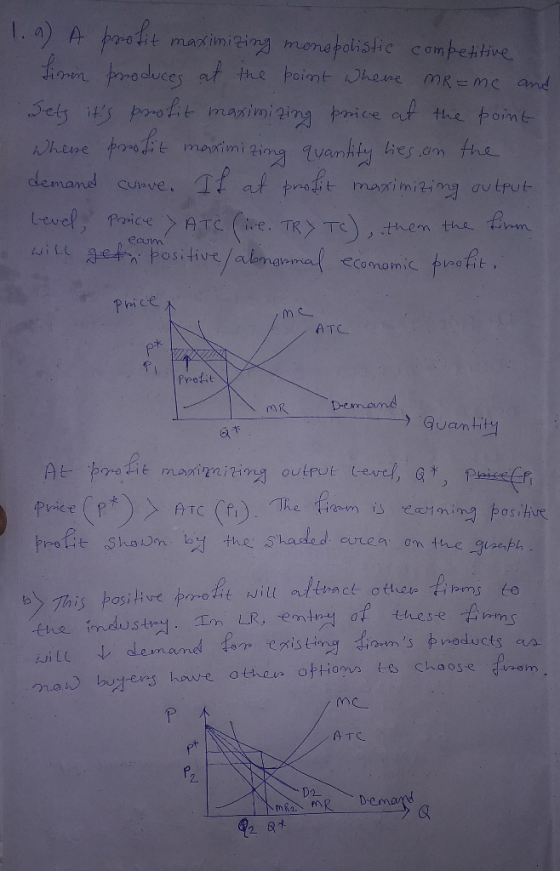 1. a) A profit maximizing monopolistic competitive
firm produces at the point where MR = MC and
sets it's profit maximizing price at the point
where profit maximizing quantity lies on the
demand curve. If at profit maximizing output
level, Price > ATC (i.e. TR > TC), then the firm
will get earn positive/abnormal economic profit.
Price
MC
ATC
P*
P1
Profit
MR
Demand
Quantity
Q*
At profit maximizing output level, Q*, Price (P1
price (P*) > ATC (P1). The firm is earning positive
profit shown by the shaded area on the graph.
b) This positive profit will attract other firms to
the industry. In LR, entry of these firms
will ↓ demand for existing firm's products as
now buyers have other options to choose from.
P
MC
ATC
P*
P2
D2
MR2
MR
Demand
Q
Q2 Q*